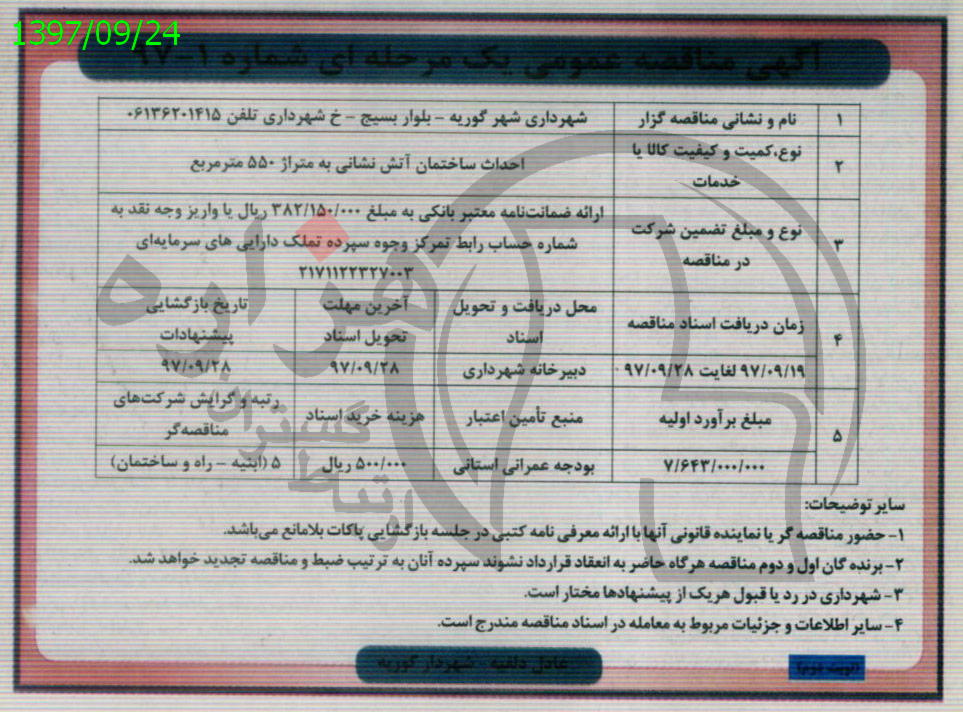 1397/09/24
آگهی مناقصه عمومی یک مرحله ای شماره ۱-۹۷
۱ نام و نشانی مناقصه گزار شهرداری شهر گوریه - بلوار بسیج - خ شهرداری تلفن ۰۶۱۳۶۲۰۱۴۱۵
۲ نوع،کمیت و کیفیت کالا یا خدمات احداث ساختمان آتش نشانی به متراژ ۵۵۰ مترمربع
۳ نوع و مبلغ تضمین شرکت در مناقصه ارائه ضمانت‌نامه معتبر بانکی به مبلغ ۳۸۲/۱۵۰/۰۰۰ ریال یا واریز وجه نقد به
شماره حساب رابط تمرکز وجوه سپرده تملک دارایی های سرمایه‌ای
۲۱۷۱۱۲۲۳۲۷۰۰۳
۴ زمان دریافت اسناد مناقصه محل دریافت و تحویل اسناد آخرین مهلت تحویل اسناد تاریخ بازگشایی پیشنهادات
۹۷/۰۹/۱۹ لغایت ۹۷/۰۹/۲۸ دبیرخانه شهرداری ۹۷/۰۹/۲۸ ۹۷/۰۹/۲۸
۵ مبلغ برآورد اولیه منبع تأمین اعتبار هزینه خرید اسناد رتبه و گرایش شرکت‌های مناقصه‌گر
۷/۶۴۳/۰۰۰/۰۰۰ بودجه عمرانی استانی ۵۰۰/۰۰۰ ریال ۵ (ابنیه - راه و ساختمان)
سایر توضیحات:
۱- حضور مناقصه گر یا نماینده قانونی آنها با ارائه معرفی نامه کتبی در جلسه بازگشایی پاکات بلامانع می‌باشد.
۲- برنده گان اول و دوم مناقصه هرگاه حاضر به انعقاد قرارداد نشوند سپرده آنان به ترتیب ضبط و مناقصه تجدید خواهد شد.
۳- شهرداری در رد یا قبول هریک از پیشنهادها مختار است.
۴- سایر اطلاعات و جزئیات مربوط به معامله در اسناد مناقصه مندرج است.
(نوبت دوم)
عادل دلفیه - شهردار گوریه
هزاره
ارتباط گستران